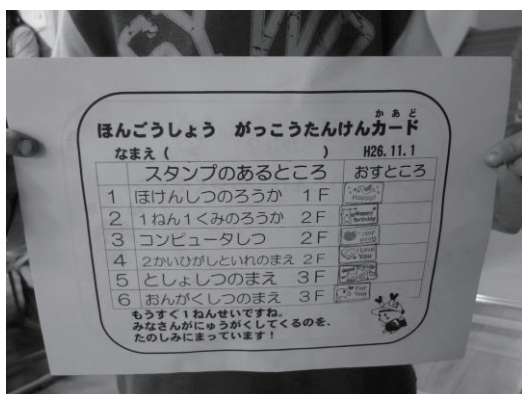 ほんごうしょう がっこうたんけんカード
かあど
なまえ( ) H26.11.1
スタンプのあるところ おすところ
1 ほけんしつのろうか 1F Happy!
2 1ねん1くみのろうか 2F Happy Birthday
3 コンピュータしつ 2F
4 2かいひがしといれのまえ 2F I Love You
5 としょしつのまえ 3F
6 おんがくしつのまえ 3F For You
もうすぐ1ねんせいですね。
みなさんがにゅうがくしてくるのを、
たのしみにまっています!